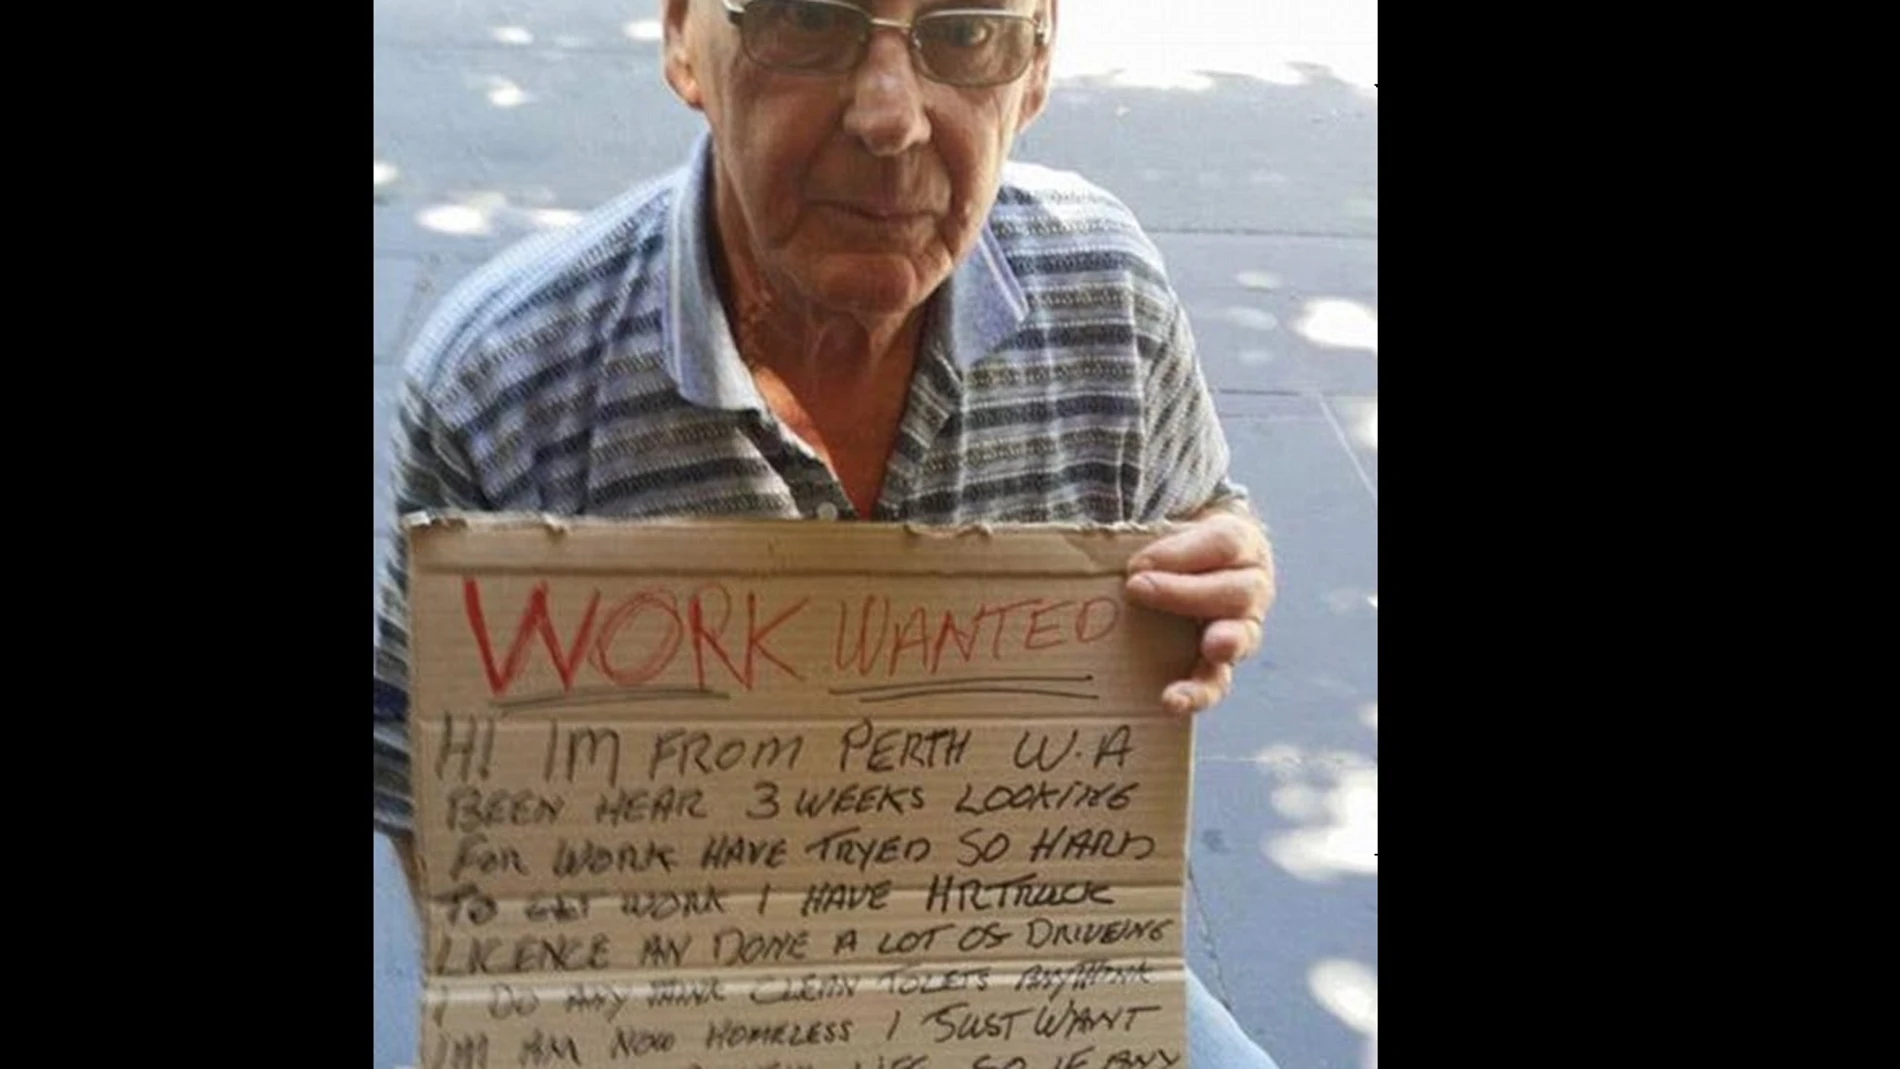 WORK WANTED
HI IM FROM PERTH W.A
BEEN HEAR 3 WEEKS LOOKING
FOR WORK HAVE TRYED SO HARD
TO GET WORK I HAVE HR TRUCK
LICENCE AN DONE A LOT OF DRIVEING
I DO ANY THINK CLEAN TOLETS ANYTHINK
IM AM NOW HOMELESS I JUST WANT
LIFE SO IF ANY